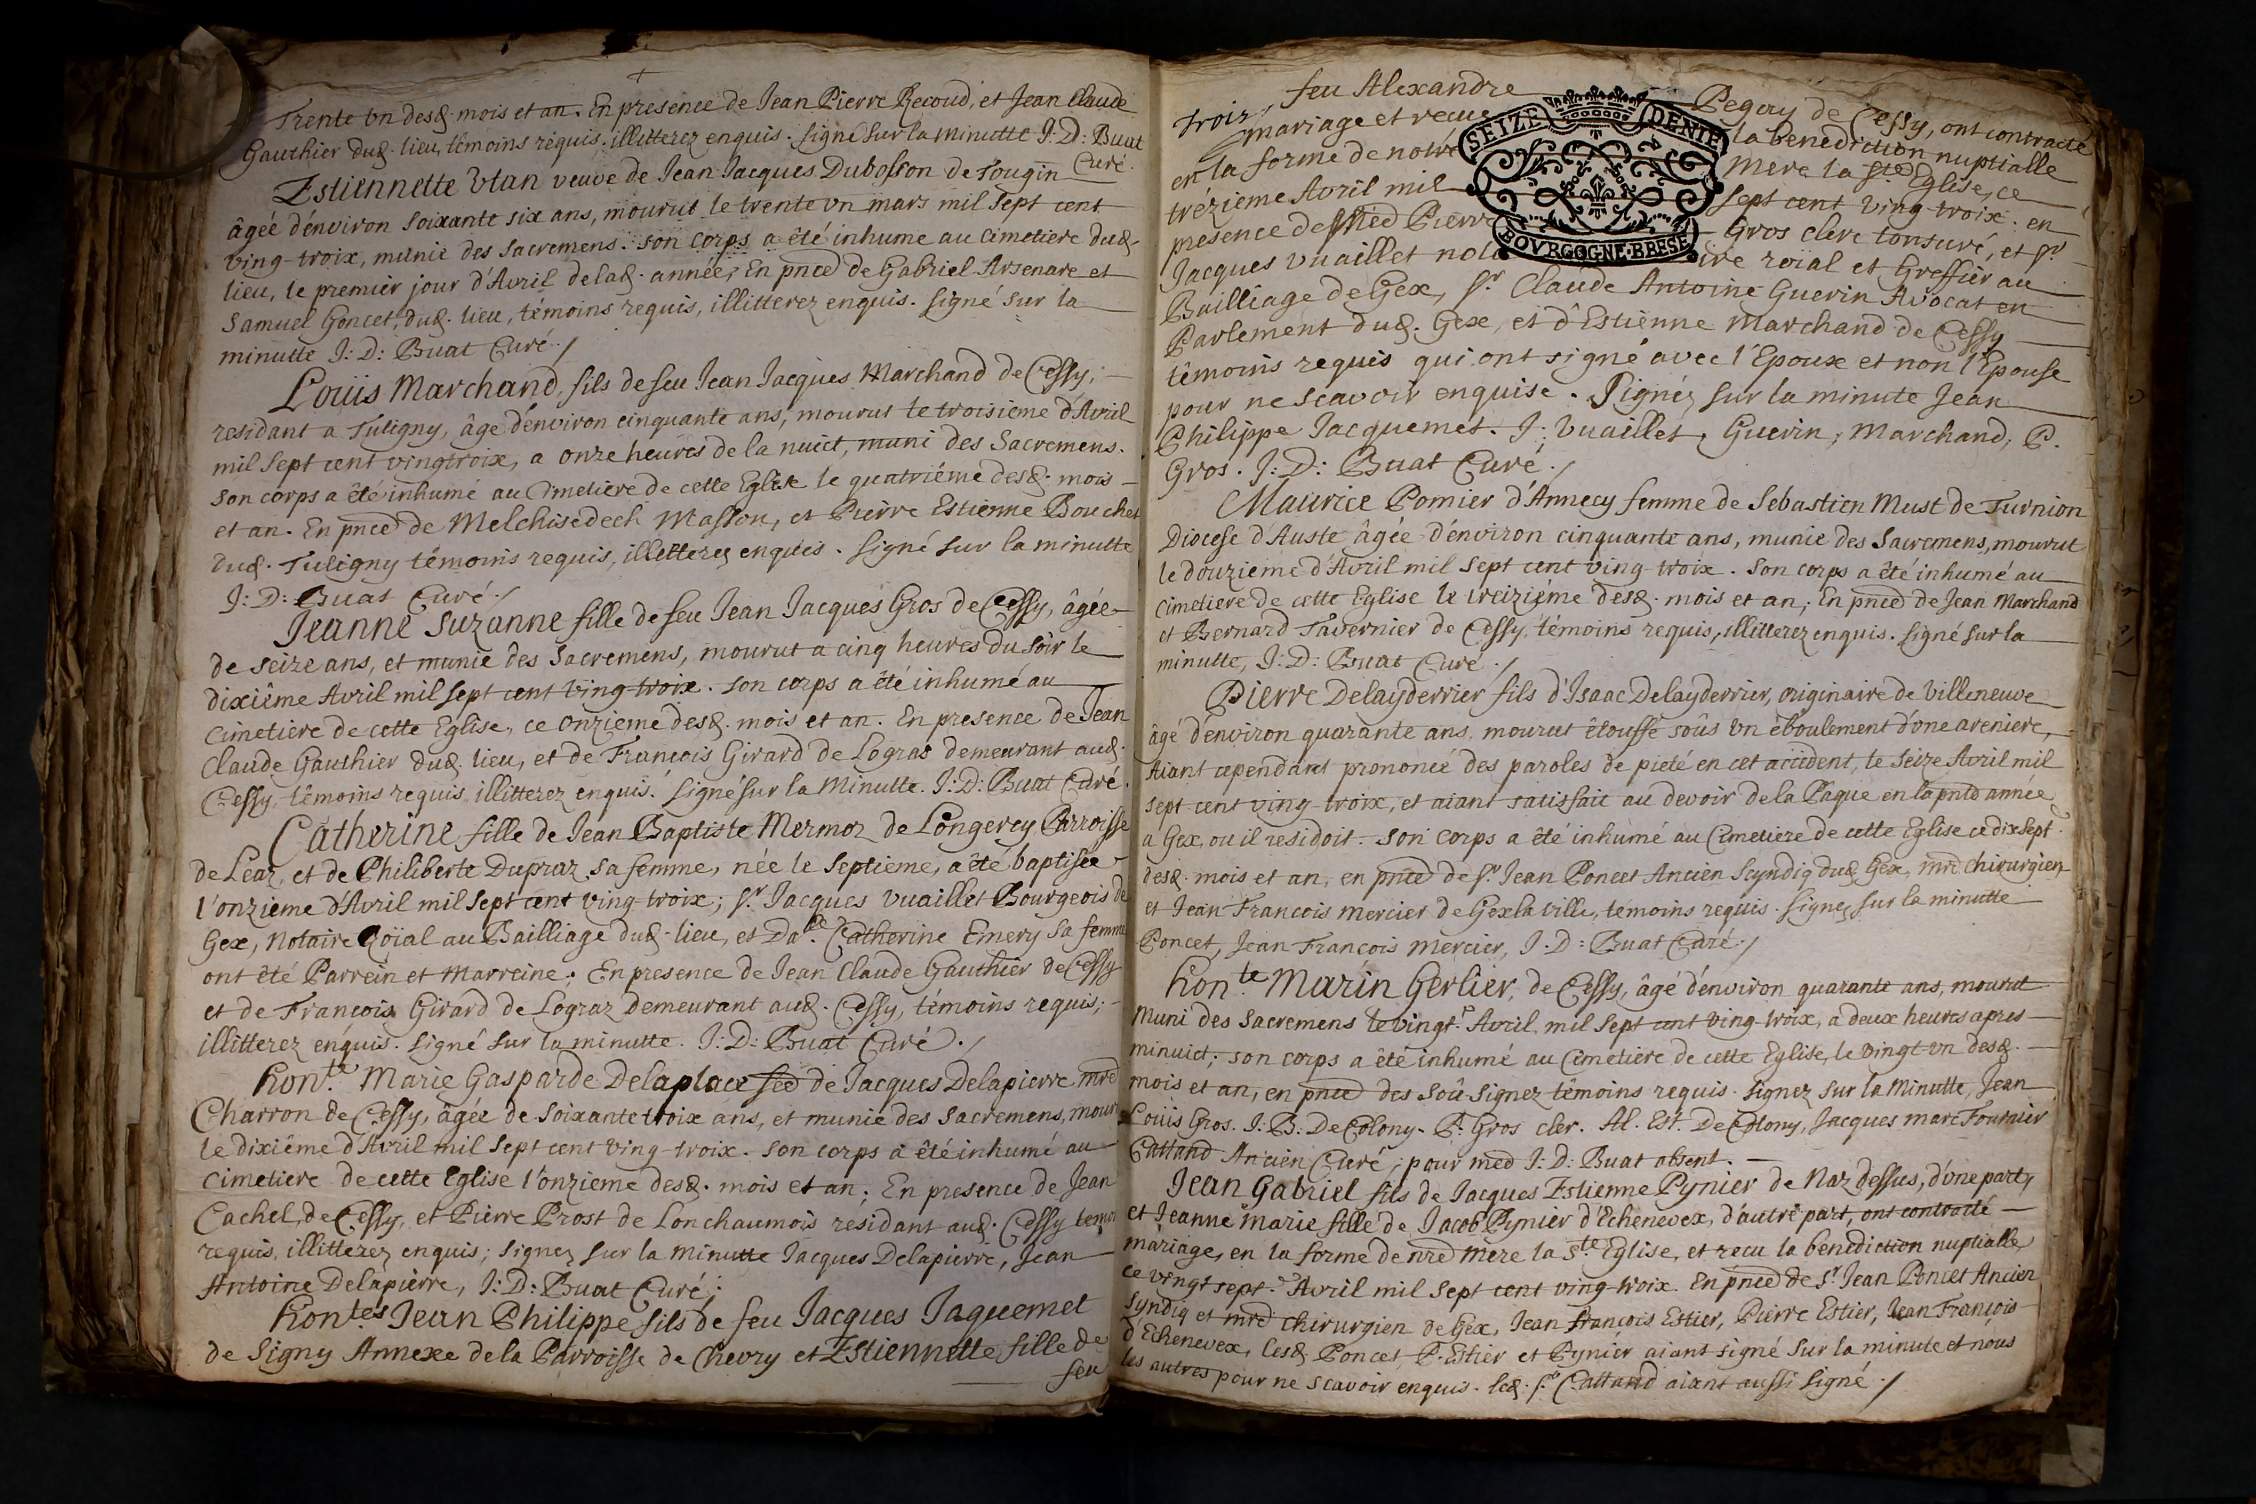 Trente vn desd. mois et an. En presence de Jean Pierre Recoud, et Jean Claude
Gauthier dud. lieu, témoins réquis, illitterez enquis. signé sur la minutte J: D: Buat
Curé.
Estiennette Utan veuve de Jean Jacques Dubosson de Tougin
âgée d'énviron soixante six ans, mourut le trente vn mars mil sept cent
ving-troix, munie des sacremens. son corps a été inhume au cimetiere dud.
lieu, le premier jour d'Avril de lad. année, En pnce de Gabriel Arsenare et
Samuel Goncet, dud. lieu, témoins requis, illitterez enquis. signé sur la
minutte J: D: Buat Curé. /
Loüis Marchand, fils de feu Jean Jacques Marchand de Cessy,
residant a Tuligny, âge d'énviron cinquante ans, mourut le troisieme d'Avril
mil sept cent vingtroix, a onze heures de la nuict, muni des Sacremens.
son corps a été inhumé au Cimetiere de cette Eglise le quatriéme desd. mois
et an. En pnce de Melchisedech Masson, et Pierre Estienne Bouchet
dud. Tuligny témoins requis, illitterez enquis. signé sur la minutte
J: D: Buat Curé. /
Jeanne Suzanne fille de feu Jean Jacques Gros de Cessy, âgée
de seize ans, et munie des Sacremens, mourut a cinq heures du soir le
dixiême Avril mil sept cent ving-troix. son corps a été inhumé au
cimetiere de cette Eglise, ce onzieme desd. mois et an. En presence de Jean
Claude Gauthier dud. lieu, et de Francois Girard de Logras demeurant aud.
Cessy, têmoins requis illitterez enquis. signé sur la Minutte. J: D: Buat Curé.
Catherine fille de Jean Baptiste Mermoz de Longerey Parroisse
de Leaz, et de Philiberte Dupraz sa femme, née le septieme, a été baptisée
l'onzieme d'Avril mil sept cent ving-troix; sr. Jacques Vuaillet Bourgeois de
Gex, Notaire Roïal au Bailliage dud. lieu, et Dalle. Catherine Emery sa femme
ont été Parrein et Marreine; En presence de Jean Claude Gauthier de Cessy
et de Francois Girard de Lograz demeurant aud. Cessy, témoins requis,
illitterez énquis. signé sur la minutte. J: D: Buat Curé. /
honte. Marie Gasparde Delaplace fee de Jacques Delapierre mre
Charron de Cessy, âgée de soixante troix ans, et munie des sacremens, mourut
le dixiême d'Avril mil sept cent ving-troix. son corps a été inhumé au
cimetiere de cette Eglise l'onzieme desd. mois et an; En presence de Jean
Cachel, de Cessy, et Pierre Prost de Lonchaumois résidant aud. Cessy temoi
requis, illitterez enquis; signez sur la minutte Jacques Delapierre, Jean
Antoine Delapierre, J: D: Buat Curé;
hontes Jean Philippe fils de feu Jacques Jaquemet
de Signy Annexe de la Parroisse de Chevry et Estiennette fille de
feu
feu Alexandre Pegouy de Cessy, ont contracté
troix
mariage et recue la benediction nuptialle
en la forme de notre Mere la ste Eglise, ce
trézieme Avril mil sept cent ving troix. en
presence de Pierre Gros clerc tonsuré, et sr.
Jacques Vuaillet notaire roial et Greffier au
Bailliage de Gex, sr. Claude Antoine Guerin Avocat en
Parlement dud. Gex, et d'Estienne Marchand de Cessy
témoins requis qui ont signé avec l'Epoux et non l'Epouse
pour ne scavoir enquise. Signéz sur la minute Jean
Philippe Jacquemet. J: Vuaillet, Guerin, Marchand, P.
Gros. J: D: Buat Curé. /
SEIZE DENIE
BOVRGOGNE·BRESE
Maurice Pomier d'Annecy femme de Sebastien Must de Turnion
Diocese d'Auste âgée d'énviron cinquante ans, munie des Sacremens, mourut
le douzieme d'Avril mil sept cent ving-troix. son corps a été inhumé au
cimetiere de cette Eglise le treiziéme desd. mois et an; En pnce de Jean Marchand
et Bernard Tavernier de Cessy, témoins requis, illitterez enquis. signé sur la
minutte, J: D: Buat Curé. /
Pierre Delayderrier fils d'Isaac Delayderrier, originaire de Villeneuve
âgé d'énviron quarante ans, mourut étouffé soûs vn éboulement d'vne areniere,
Aiant cependant prononcé des paroles de pieté en cet accident, le seize Avril mil
sept cent ving-troix, et aiant satisfait au devoir de la Paque en la pnte année
a Gex, ou il residoit. son corps a été inhumé au Cimetiere de cette Eglise ce dix sept
desd. mois et an, en pnce de sr. Jean Poncet Ancien Scyndiq dud. Gex, mre chirurgien
et Jean Francois Mercier de Gex la ville, temoins requis. signez sur la minutte
Poncet, Jean Francois Mercier, J. D: Buat Curé. /
honte. Marin Gerlier, de Cessy, âgé d'énviron quarante ans, mourut
Muni des Sacremens le vingte. Avril mil sept cent ving-troix, a deux heures apres
minuict; son corps a été inhumé au Cimetiere de cette Eglise, le vingt vn desd.
mois et an, en pnce des soû-signez témoins requis. signez sur la Minutte, Jean
Loüis Gros. J: B: De Colony. P: Gros cler. Al. Est. De Colony, Jacques marc Fournier
Cattand Ancien Curé, pour med J: D: Buat absent.
Jean Gabriel fils de Jacques Estienne Pynier de Naz dessus, d'vne part,
et Jeanne Marie fille de Jacob Pynier d'Echenevex, d'autre part, ont contracté
mariage, en la forme de nre Mere la ste. Eglise, et recu la benediction nuptialle
ce vingt septe. Avril mil sept cent ving-troix. En pnce de sr. Jean Poncet Ancien
syndiq et mre chirurgien de Gex, Jean francois Estier, Pierre Estier, Jean François
d'Echenevex, lesd. Poncet, P. Estier et Pynier aiant signé sur la minute et nous
les autres pour ne scavoir enquis. led. sr. Cattand aiant aussi signé. /